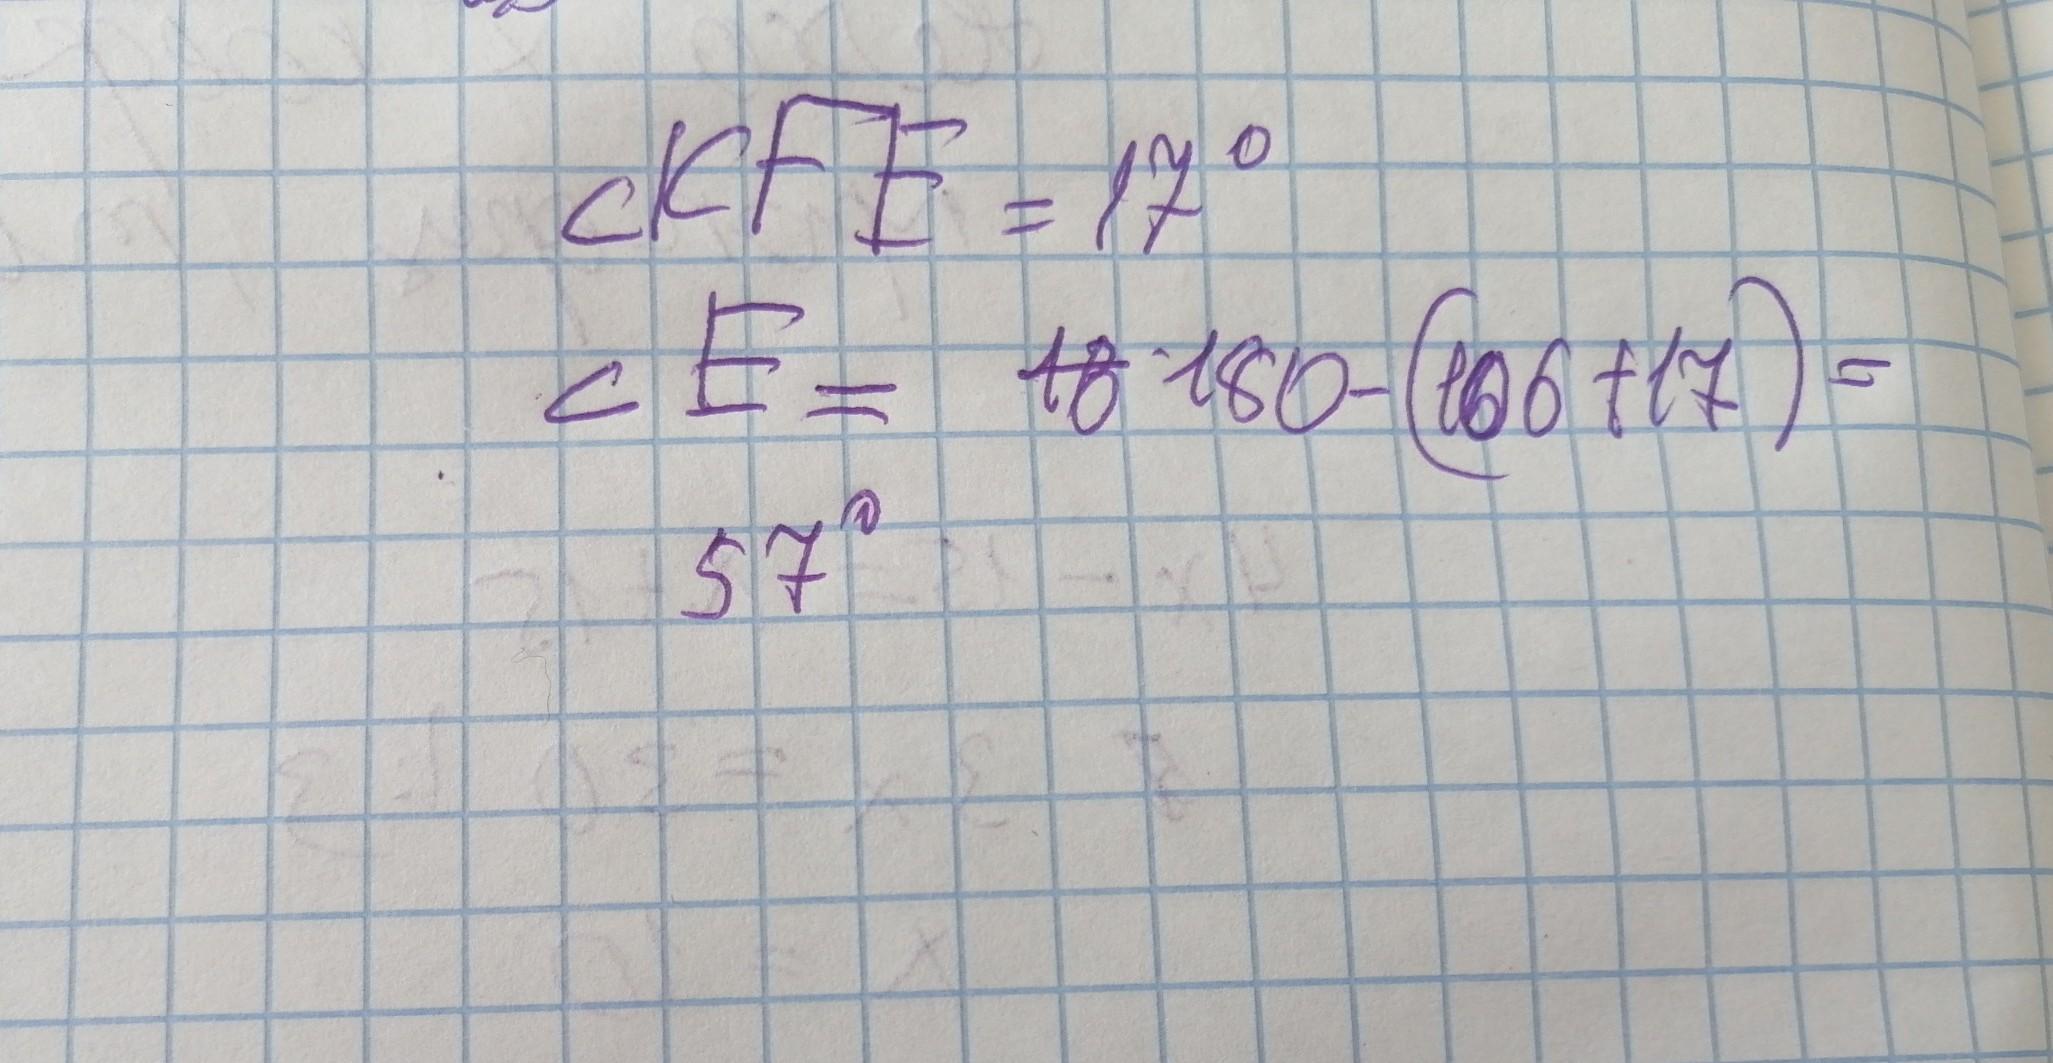 ∠KFE = 17°
∠E = 18 180-(106+17)=
57°